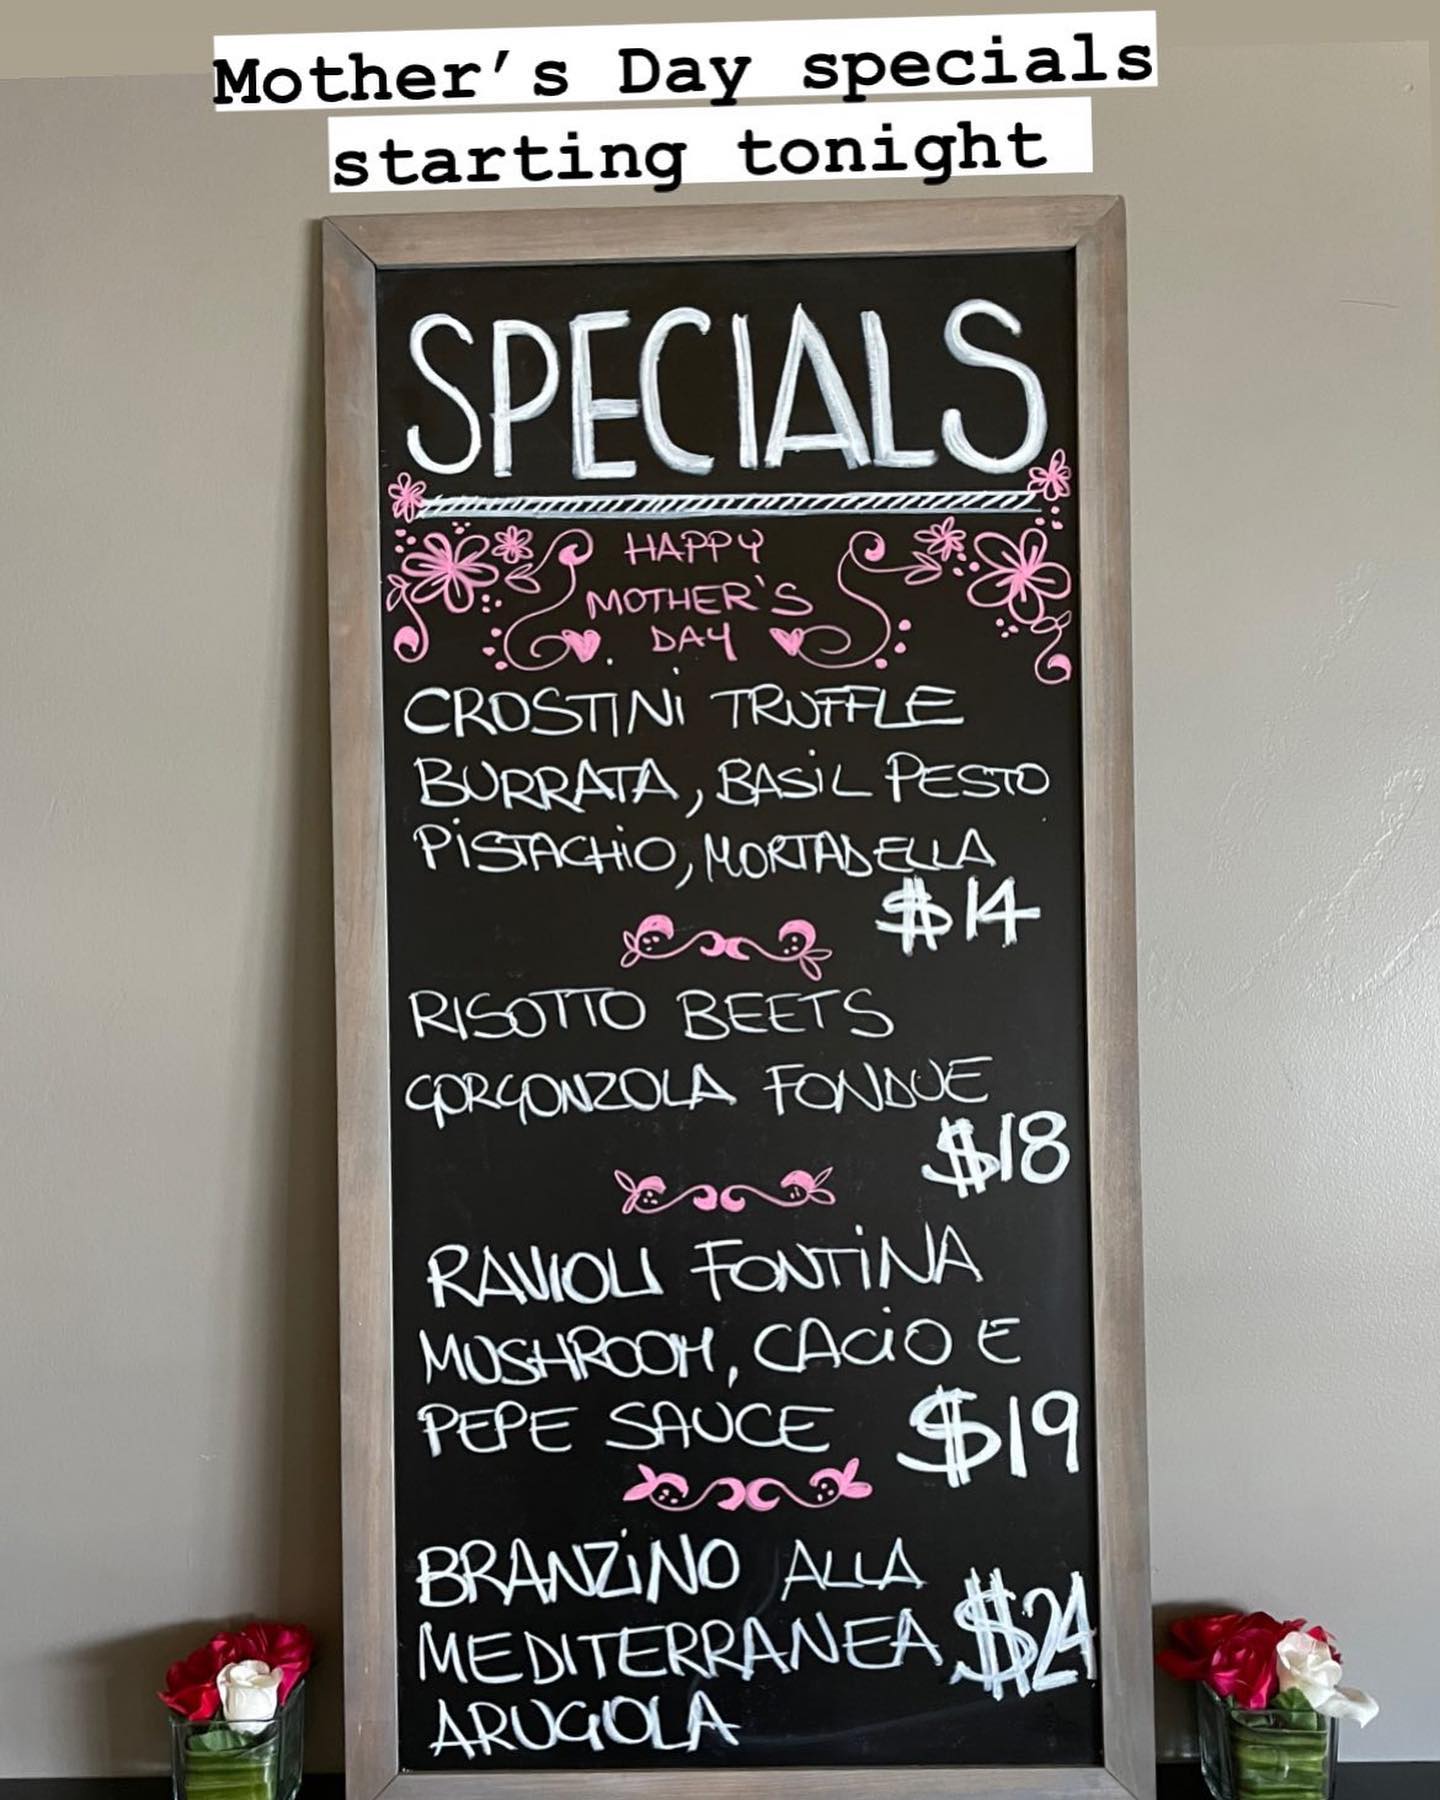 Mother's Day specials
starting tonight
SPECIALS
HAPPY
MOTHER'S
DAY
CROSTINI TRUFFLE
BURRATA, BASIL PESTO
PISTACHIO, MORTADELLA
$14
RISOTTO BEETS
GORGONZOLA FONDUE
$18
RAVIOLI FONTINA
MUSHROOM, CACIO E
PEPE SAUCE $19
BRANZINO ALLA
MEDITERRANEA $24
ARUGOLA